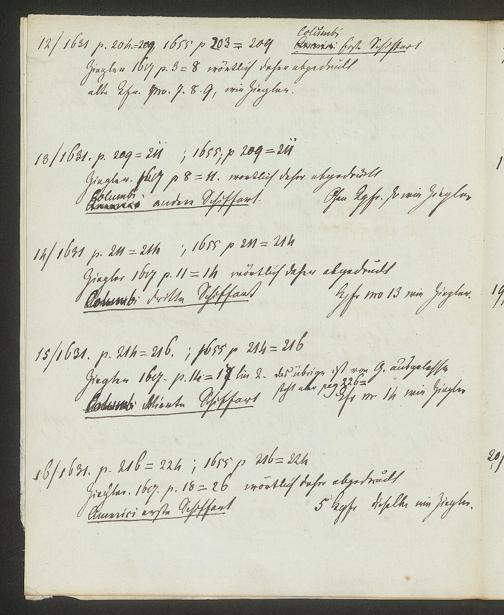 12/ 1631 p. 204=209 1655 p 203 = 209 Columbi erste Schiffart
Ziegler 1617 p. 3 = 8 wörtlich daher abgedruckt
alte Kfr. Nro. 7. 8. 9, wie Ziegler.
13/ 1631. p. 209 = 211 ; 1655, p 209 = 211
Ziegler. 1617 p 8 = 11. wörtlich daher abgedruckt
Columbi andere Schiffart. Kpfr. wie Ziegler
14/ 1631 p. 211 = 214 ; 1655 p 211 = 214
Ziegler 1617 p. 11 = 14 wörtlich daher abgedruckt
Columbi dritte Schiffart Kpfr nro 13 wie Ziegler.
15/ 1631. p. 214 = 216. ; 1655 p 214 = 216
Ziegler 1617. p. 14 = 17 lin 2. das übrige ist von G. ausgelassen
steht aber pag 226
Columbi vierte Schiffart Kpfr nr 14 wie Ziegler
16/ 1631. p. 216 = 224 ; 1655 p 216 = 224
Ziegler. 1617. p. 18 = 26 wörtlich daher abgedruckt
Americi erste Schiffart 5 Kpfr dieselbe wie Ziegler.